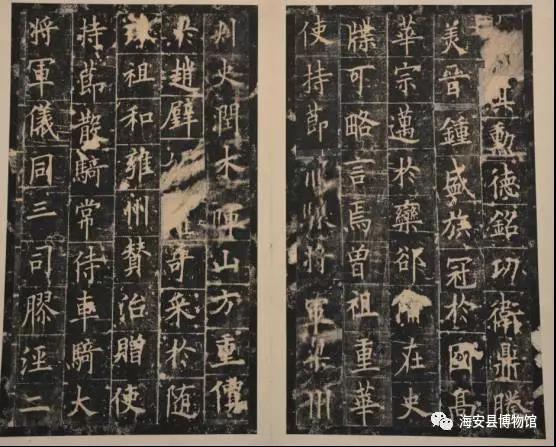 其勳德銘功衛鼎騰
美晉鍾盛族冠於國高
華宗邁於欒郤在史
牒可略言焉曾祖重華
使持節將軍梁州
刺史潤木暉山方重價
於趙璧奇采於隨
祖和雍州贊治贈使
持節散騎常侍車騎大
將軍儀同三司膠涇二
海安县博物馆